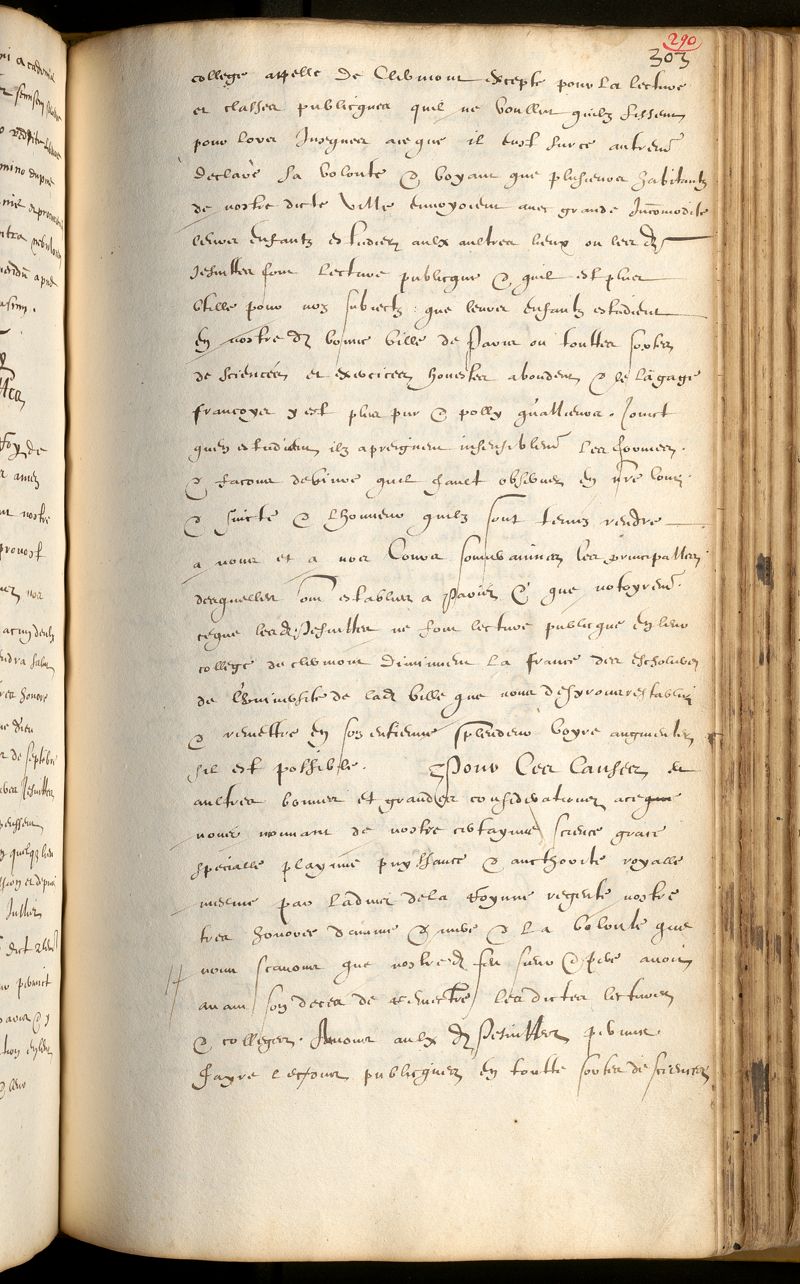 290
303
college appelle de Clermont excepte pour la lecture
et classes publicques quil ne voullut quilz fissent
pour lors Jusques ace que il eust sur ce autremt
declaré sa volonte & voyant que plusieurs habitants
de nostre dicte ville envoyoient avec grande Incomodite
leurs enfantz estudier aulx aultres lieux ou les dz
Jesuittes font lecture publicque & quil est plus
utille pour noz subiectz que leurs enfantz estudient
en nostre dz bonne ville de Paris ou touttes sortes
de sciences et exercices honestes abondent & le lágage
francoys y est plus pur & polly qu'allieurs. Joinct
quen estudient ilz apreignent insensiblemt les formes
& facons de vivre quil fault observer en nre cour
& suicte & lhonneur quilz sont tenus rendre
a nous et a nos Cours souverainnes les principalles
desquelles sont establies a Paris & que notoyremt
ceque lesdz Jesuittes ne font lecture publicque en leur
college de clermont diminuent la france des escholiers
de l'universite de ladz ville que nous desyrons restablir
& remettre en son entienne splendeur voyre augmenter
sil est possible. Pour Ces Causes et
aultres bonnes et grandes considerations ace que
nous mouvant de nostre certaynne science grace
specialle playnne puyssance & aucthorite royalle
mesme par ladvis de la Roynne regente nostre
tres honoree damme & mere & la volonte que
nous scavons que nostredz feu sieur & pere avoir
avant son deces de remettre lesdictes lectures
& colleges. Avons aulx dz Jesuittes permis
fayre lecons publicques en toutte sortes de sciences